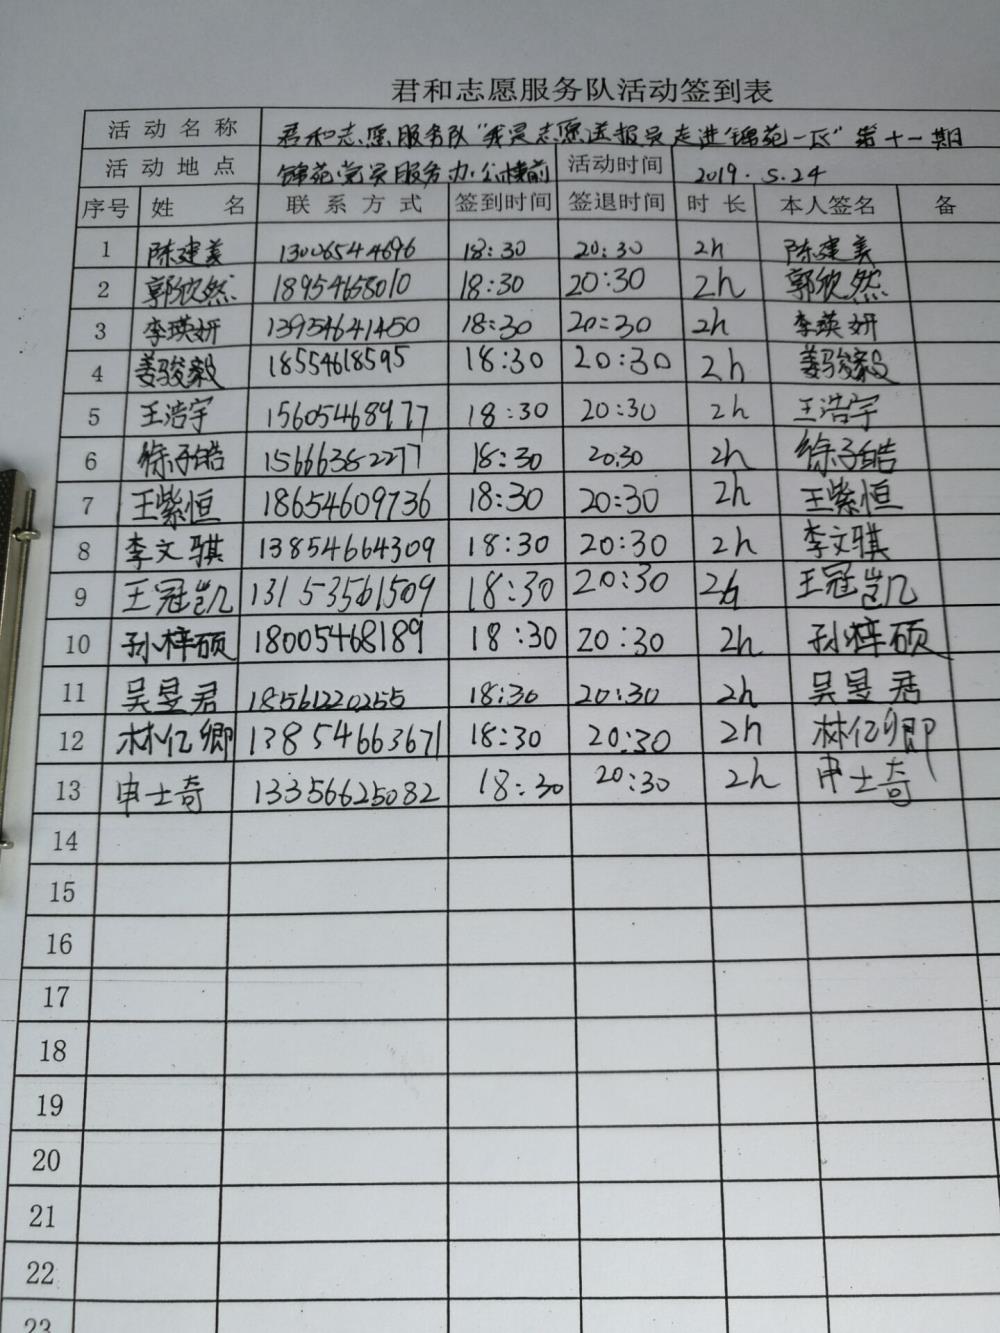 君和志愿服务队活动签到表
活动名称 君和志愿服务队"我是志愿送报员走进锦苑一区"第十一期
活动地点 锦苑党员服务办公楼前 活动时间 2019.5.24
序号 姓名 联系方式 签到时间 签退时间 时长 本人签名 备
1 陈建美 13006544696 18:30 20:30 2h 陈建美
2 郭欣然 18954658010 18:30 20:30 2h 郭欣然
3 李瑛妍 13954641450 18:30 20:30 2h 李瑛妍
4 姜骏毅 18554618595 18:30 20:30 2h 姜骏毅
5 王浩宇 15605468977 18:30 20:30 2h 王浩宇
6 徐子皓 15666382277 18:30 20:30 2h 徐子皓
7 王紫恒 18654609736 18:30 20:30 2h 王紫恒
8 李文骐 13854664309 18:30 20:30 2h 李文骐
9 王冠凯 13153561509 18:30 20:30 2h 王冠凯
10 孙梓硕 18005468189 18:30 20:30 2h 孙梓硕
11 吴昱君 18561220255 18:30 20:30 2h 吴昱君
12 林亿卿 13854663671 18:30 20:30 2h 林亿卿
13 申士奇 13356625082 18:30 20:30 2h 申士奇
14
15
16
17
18
19
20
21
22
23